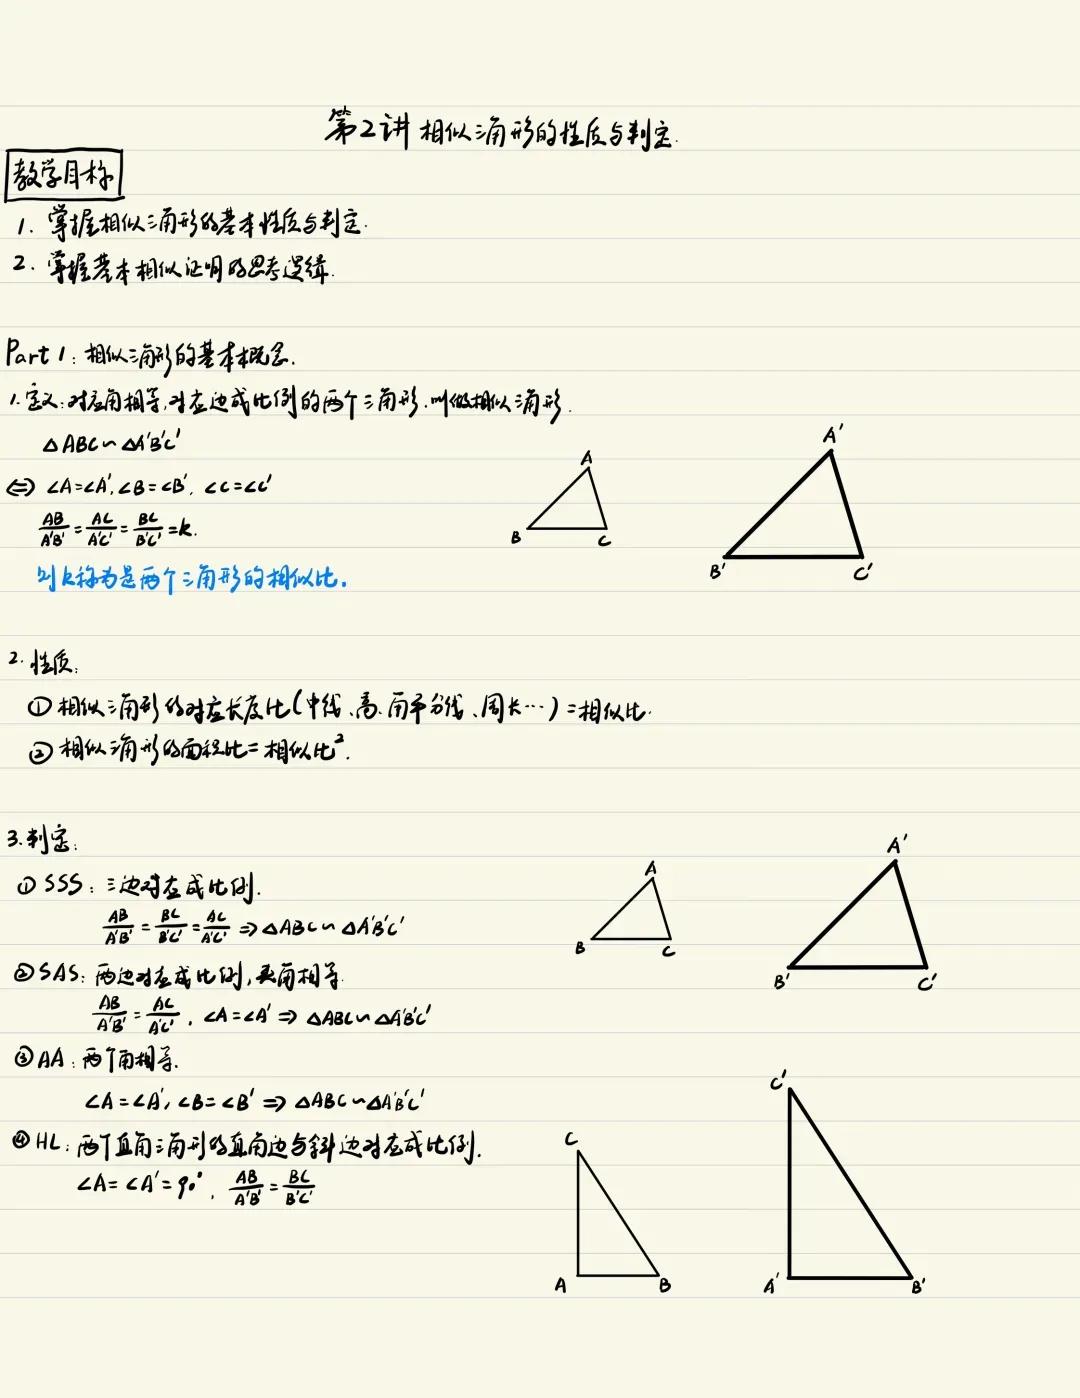 第2讲 相似三角形的性质与判定.
教学目标
1. 掌握相似三角形的基本性质与判定.
2. 掌握基本相似证明的思考逻辑.
Part 1: 相似三角形的基本概念.
1. 定义: 对应角相等, 对应边成比例的两个三角形. 叫做相似三角形.
△ABC∽△A'B'C'
⇔ ∠A=∠A', ∠B=∠B', ∠C=∠C'
AB/A'B' = AC/A'C' = BC/B'C' = k.
则k称为是两个三角形的相似比.
A
B
C
A'
B'
C'
2. 性质:
① 相似三角形的对应长度比(中线、高、角平分线、周长…) = 相似比.
② 相似三角形的面积比 = 相似比².
3. 判定:
① SSS: 三边对应成比例.
AB/A'B' = BC/B'C' = AC/A'C' ⇒ △ABC∽△A'B'C'
② SAS: 两边对应成比例, 夹角相等.
AB/A'B' = AC/A'C', ∠A=∠A' ⇒ △ABC∽△A'B'C'
③ AA: 两个角相等.
∠A=∠A', ∠B=∠B' ⇒ △ABC∽△A'B'C'
④ HL: 两个直角三角形的直角边与斜边对应成比例.
∠A=∠A'=90°, AB/A'B' = BC/B'C'
A
B
C
A'
B'
C'
C
A
B
C'
A'
B'